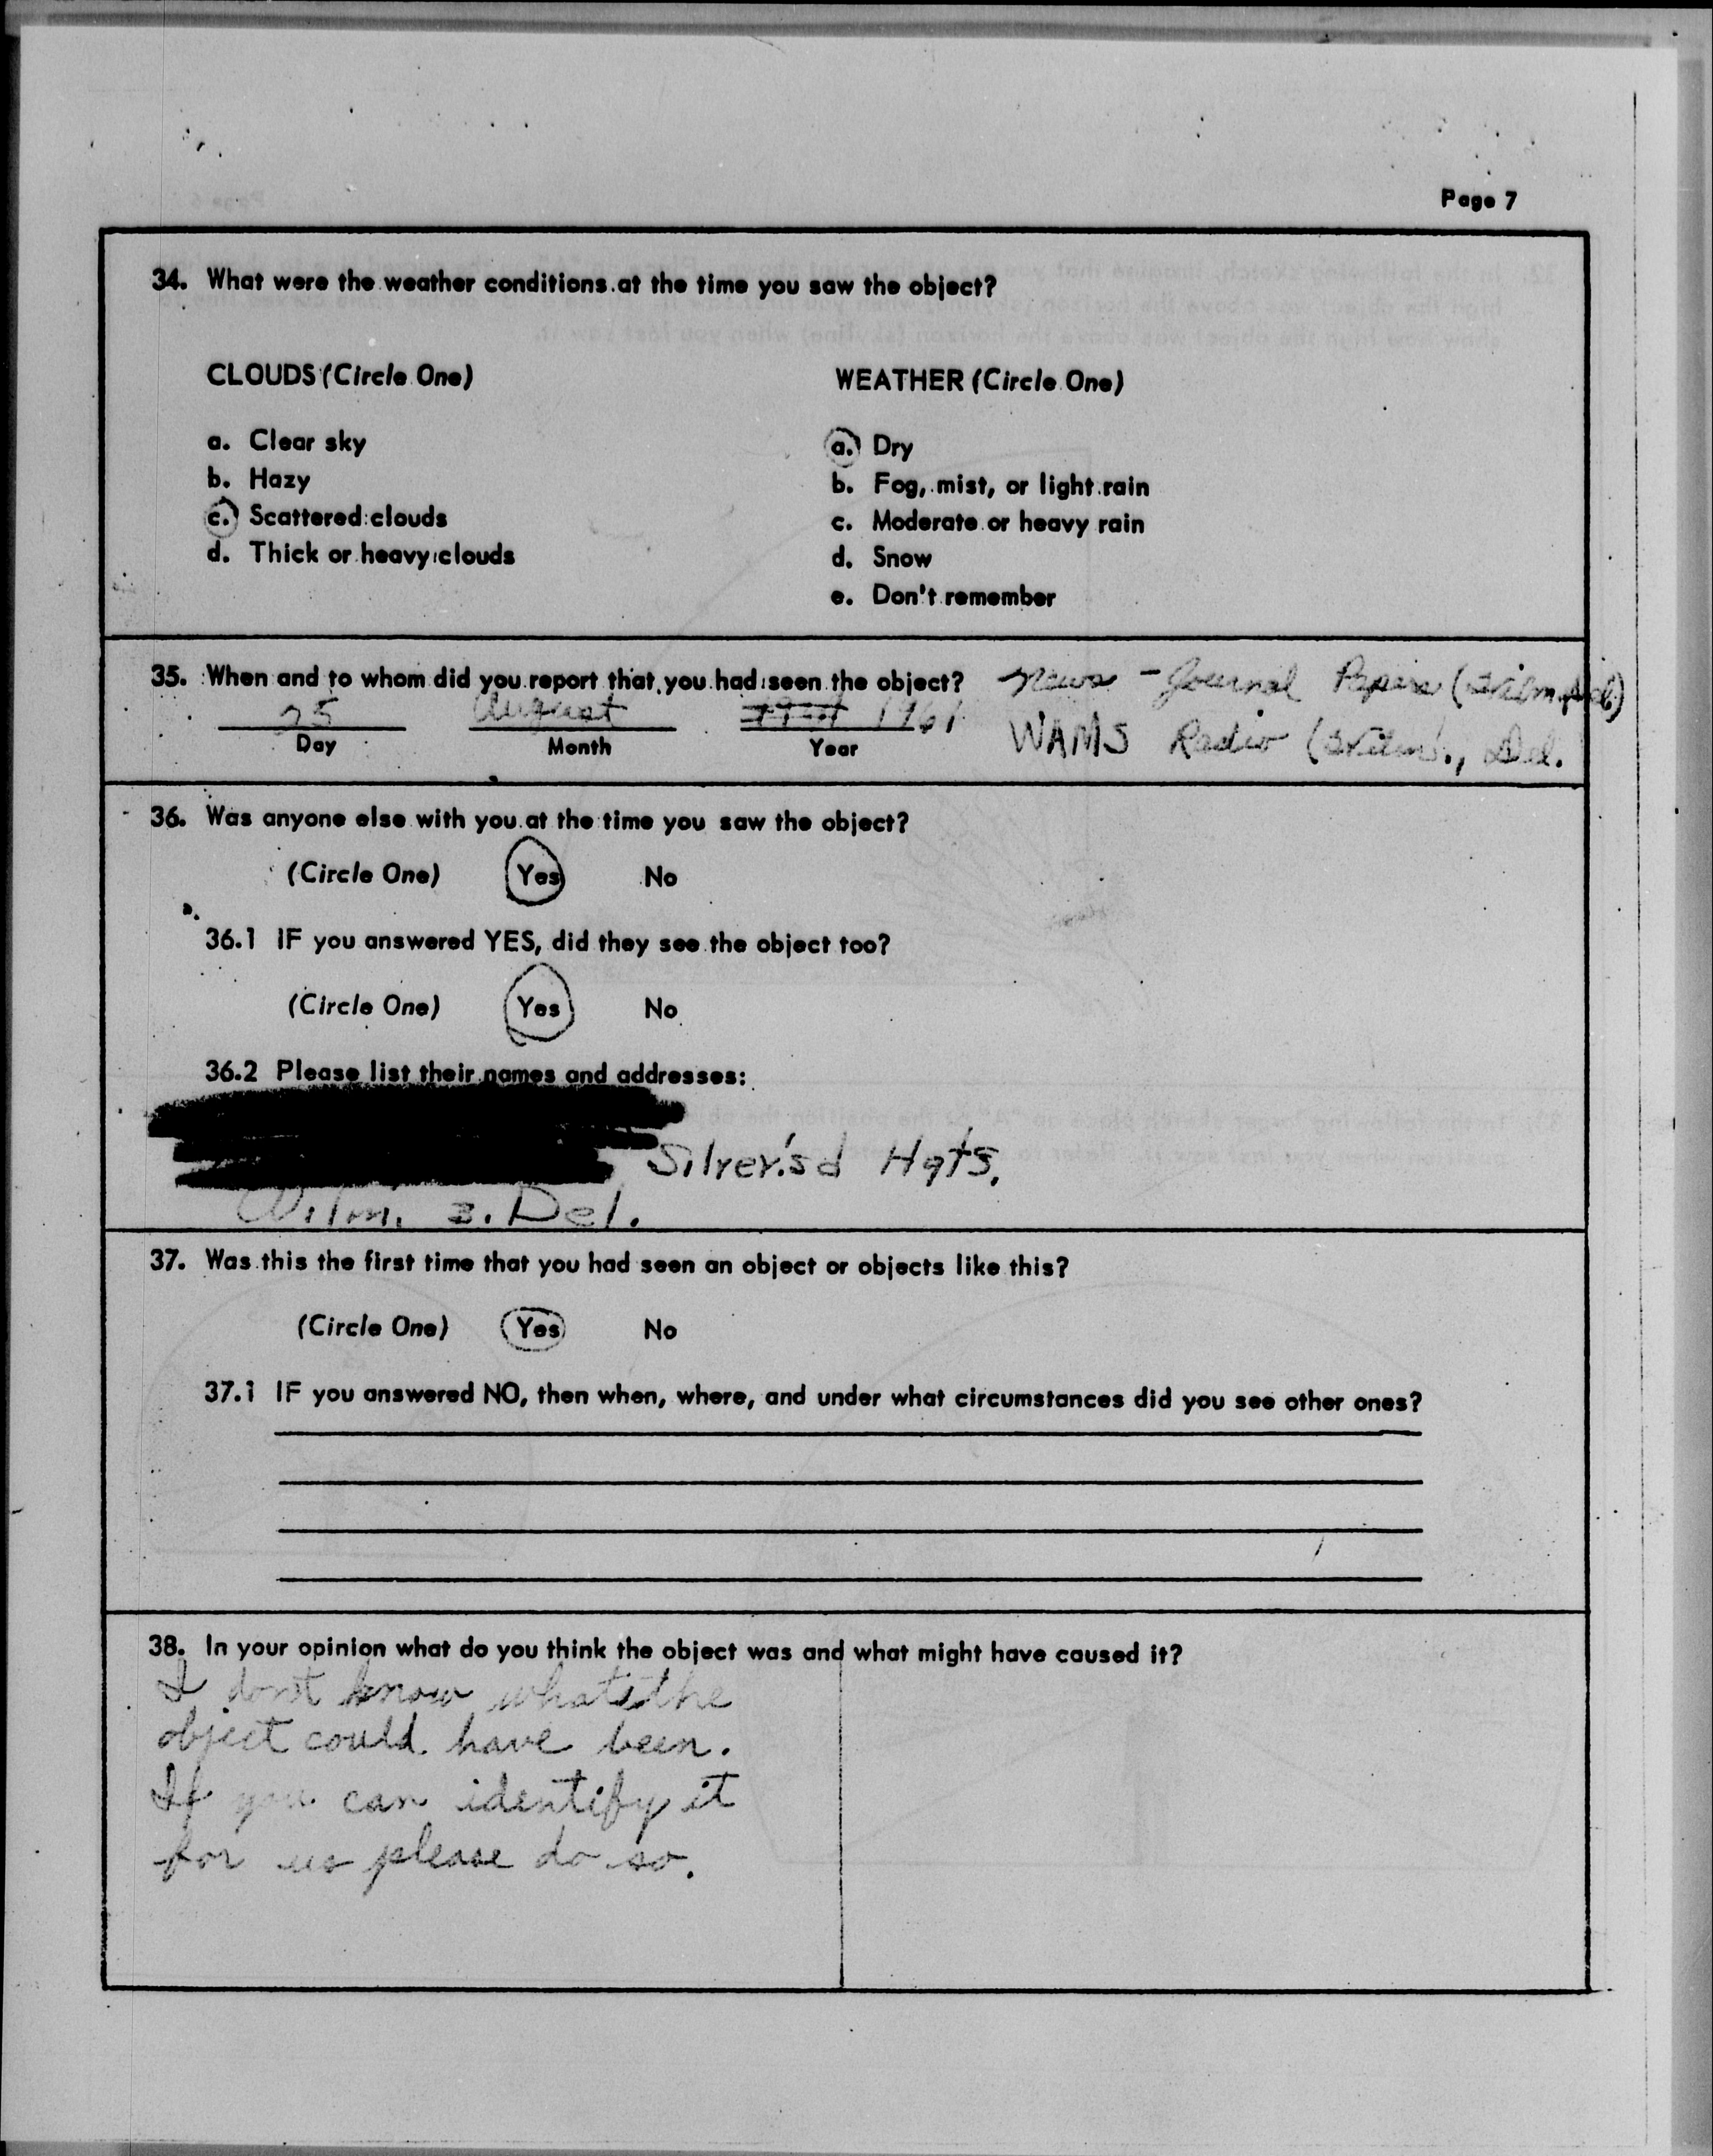 Page 7
34. What were the weather conditions at the time you saw the object?
CLOUDS (Circle One)
WEATHER (Circle One)
a. Clear sky
b. Hazy
c. Scattered clouds
d. Thick or heavy clouds
a. Dry
b. Fog, mist, or light rain
c. Moderate or heavy rain
d. Snow
e. Don't remember
35. When and to whom did you report that you had seen the object? News - Journal Papers (Wilm., Del)
25 August 1961 WAMS Radio (Wilm., Del.
Day Month Year
36. Was anyone else with you at the time you saw the object?
(Circle One) Yes No
36.1 IF you answered YES, did they see the object too?
(Circle One) Yes No
36.2 Please list their names and addresses:
Silver'sd Hgts.
Wilm. 3. Del.
37. Was this the first time that you had seen an object or objects like this?
(Circle One) Yes No
37.1 IF you answered NO, then when, where, and under what circumstances did you see other ones?
38. In your opinion what do you think the object was and what might have caused it?
I don't know what the
object could have been.
If you can identify it
for us please do so.